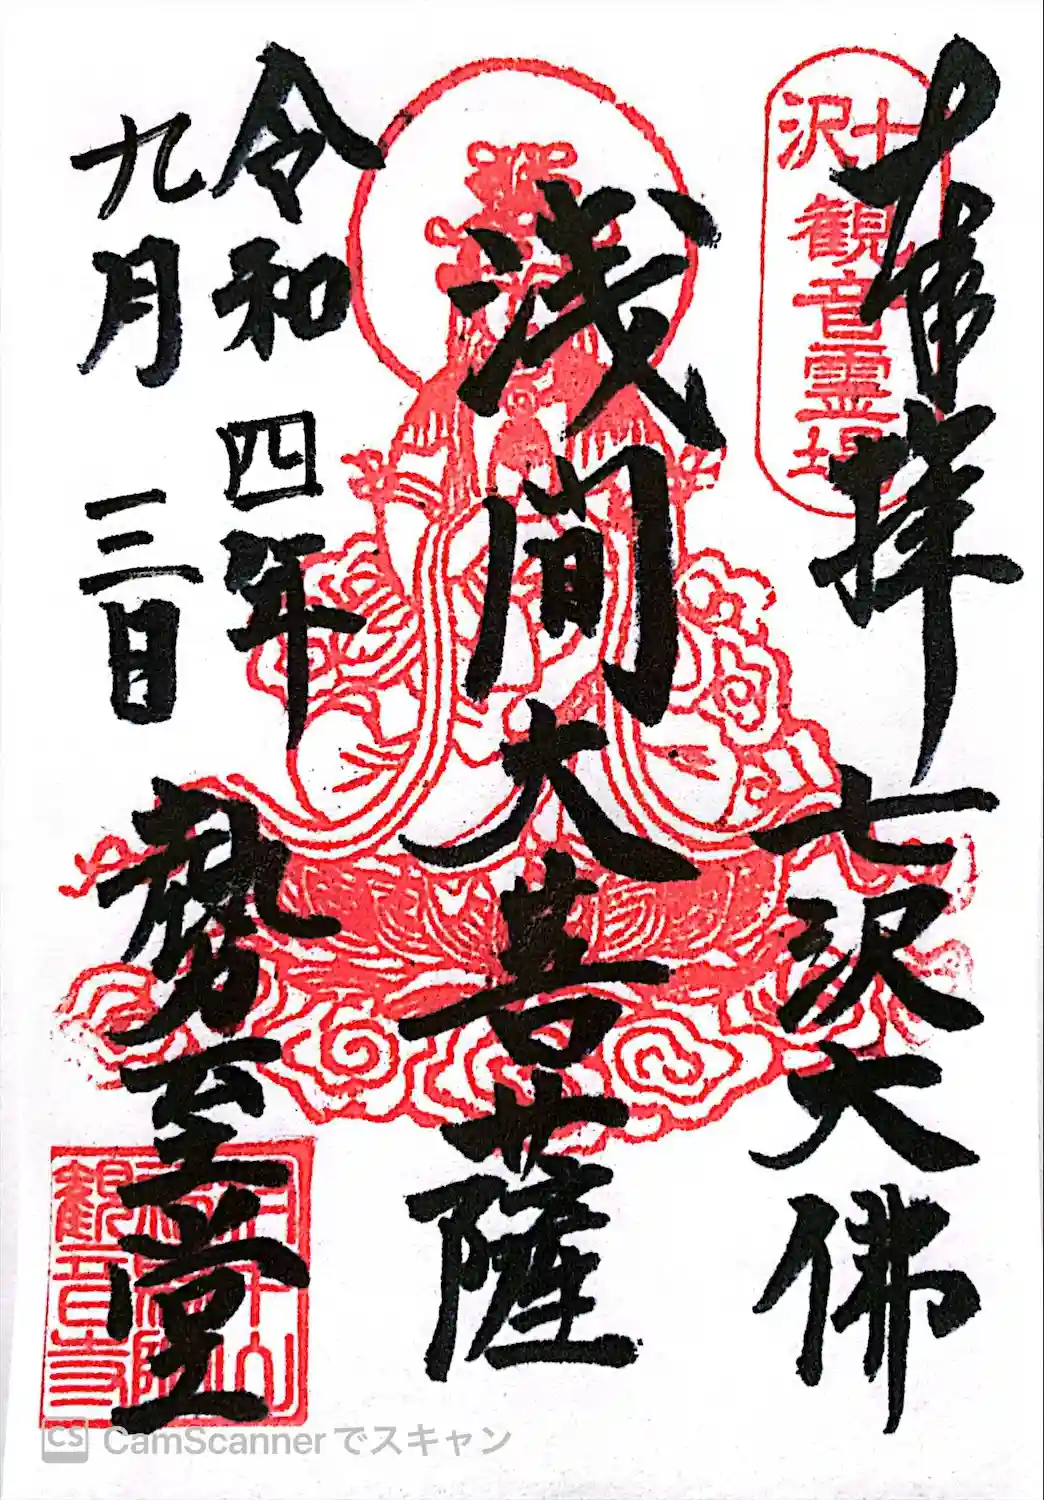 奉拝
七沢大佛
七沢
観音霊場
浅間大菩薩
令和四年
九月三日
勢至堂
観音寺
CS CamScannerでスキャン